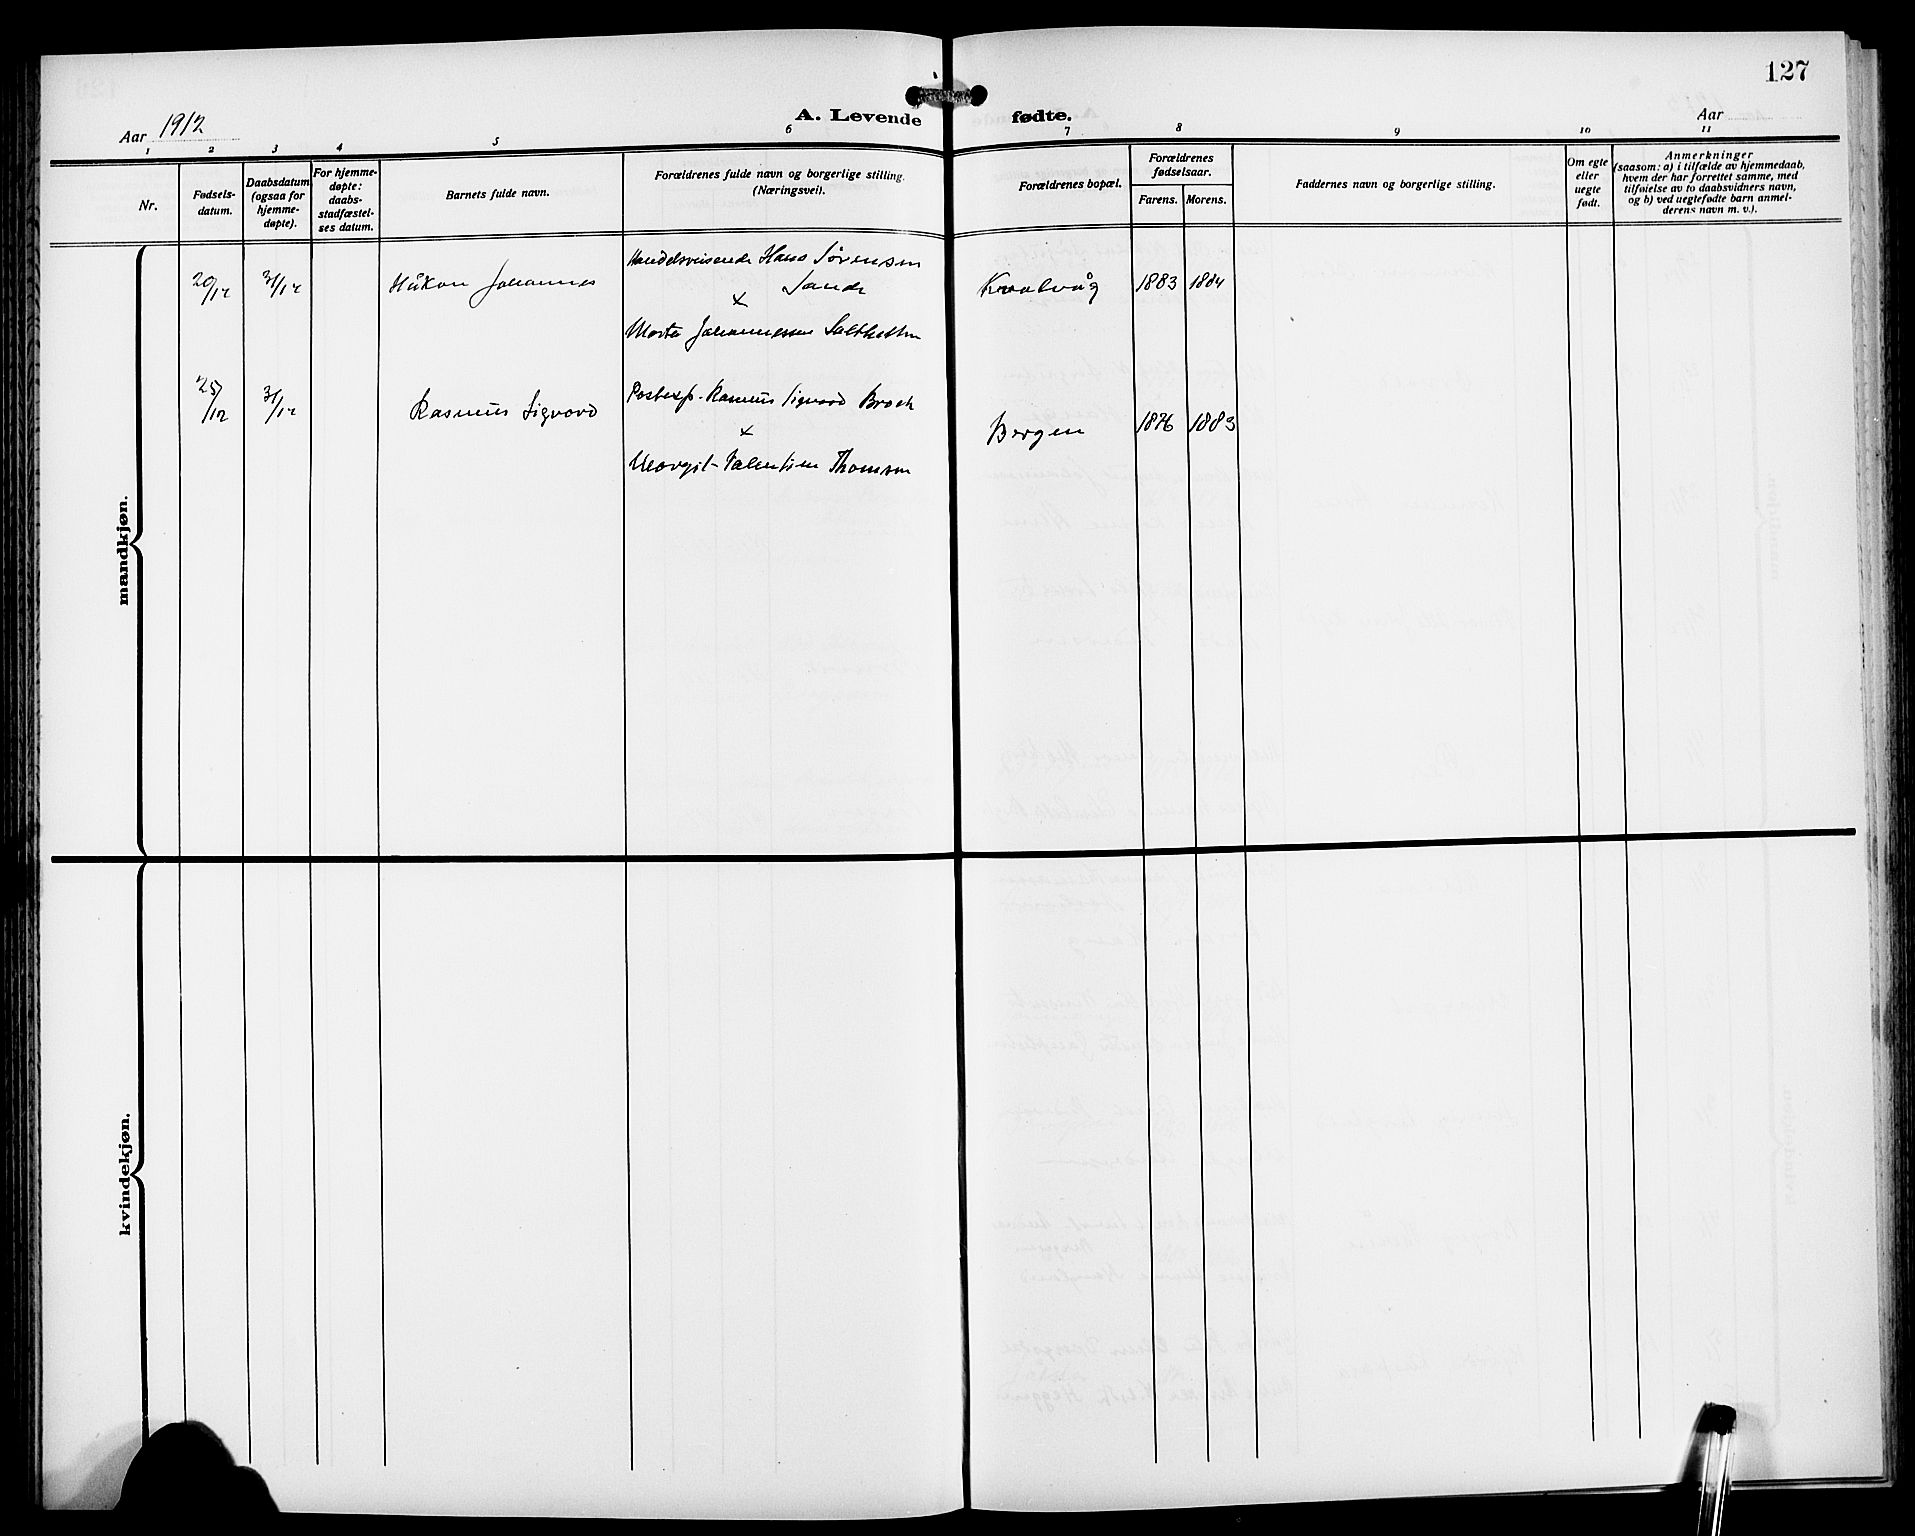 127
A. Levende fødte.
Aar 1912
Aar
1 2 3 4 5 6 7 8 9 10 11
Nr.
Fødsels-
datum.
Daabsdatum
(ogsaa for
hjemme-
døpte).
For hjemme-
døpte:
daabs-
stadfæstel-
ses datum.
Barnets fulde navn.
Forældrenes fulde navn og borgerlige stilling.
(Næringsvei).
Forældrenes bopæl.
Forældrenes
fødselsaar.
Farens. Morens.
Faddernes navn og borgerlige stilling.
Om egte
eller
uegte
født.
Anmerkninger
(saasom: a) i tilfælde av hjemmedaab,
hvem der har forrettet samme, med
tilføielse av to daabsvidners navn,
og b) ved uegtefødte barn anmel-
derens navn m. v.).
mandkjøn.
Handelsreisende Hans Sørensen
20/12 31/12 Håkon Johannes Sande Kvalvåg 1883 1884
x
Marta Johannessen
25/12 31/12 Rasmus Sigvard Postexp. Rasmus Sigvard Broch Bergen 1876 1883
x
Margit Valentine Thomsen
kvindekjøn.